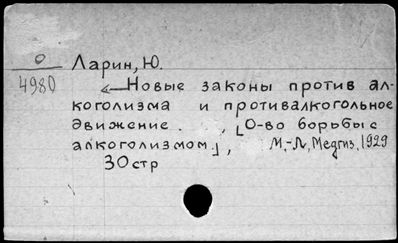 О
4980
Ларин, Ю.
Новые законы против ал-
коголизма и противалкогольное
движение. , [О-во борьбы с
алкоголизмом], М.-Л, Медгиз, 1929
30 стр